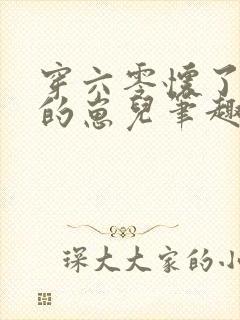 穿六零懷了
的崽兒筆趣
琛大大家的小